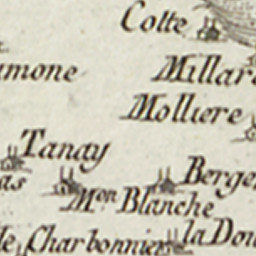 Colte
amone
Millar
Molliere
Tanay
Berge
as
Mon Blanche
le Charbonnier
la Dou